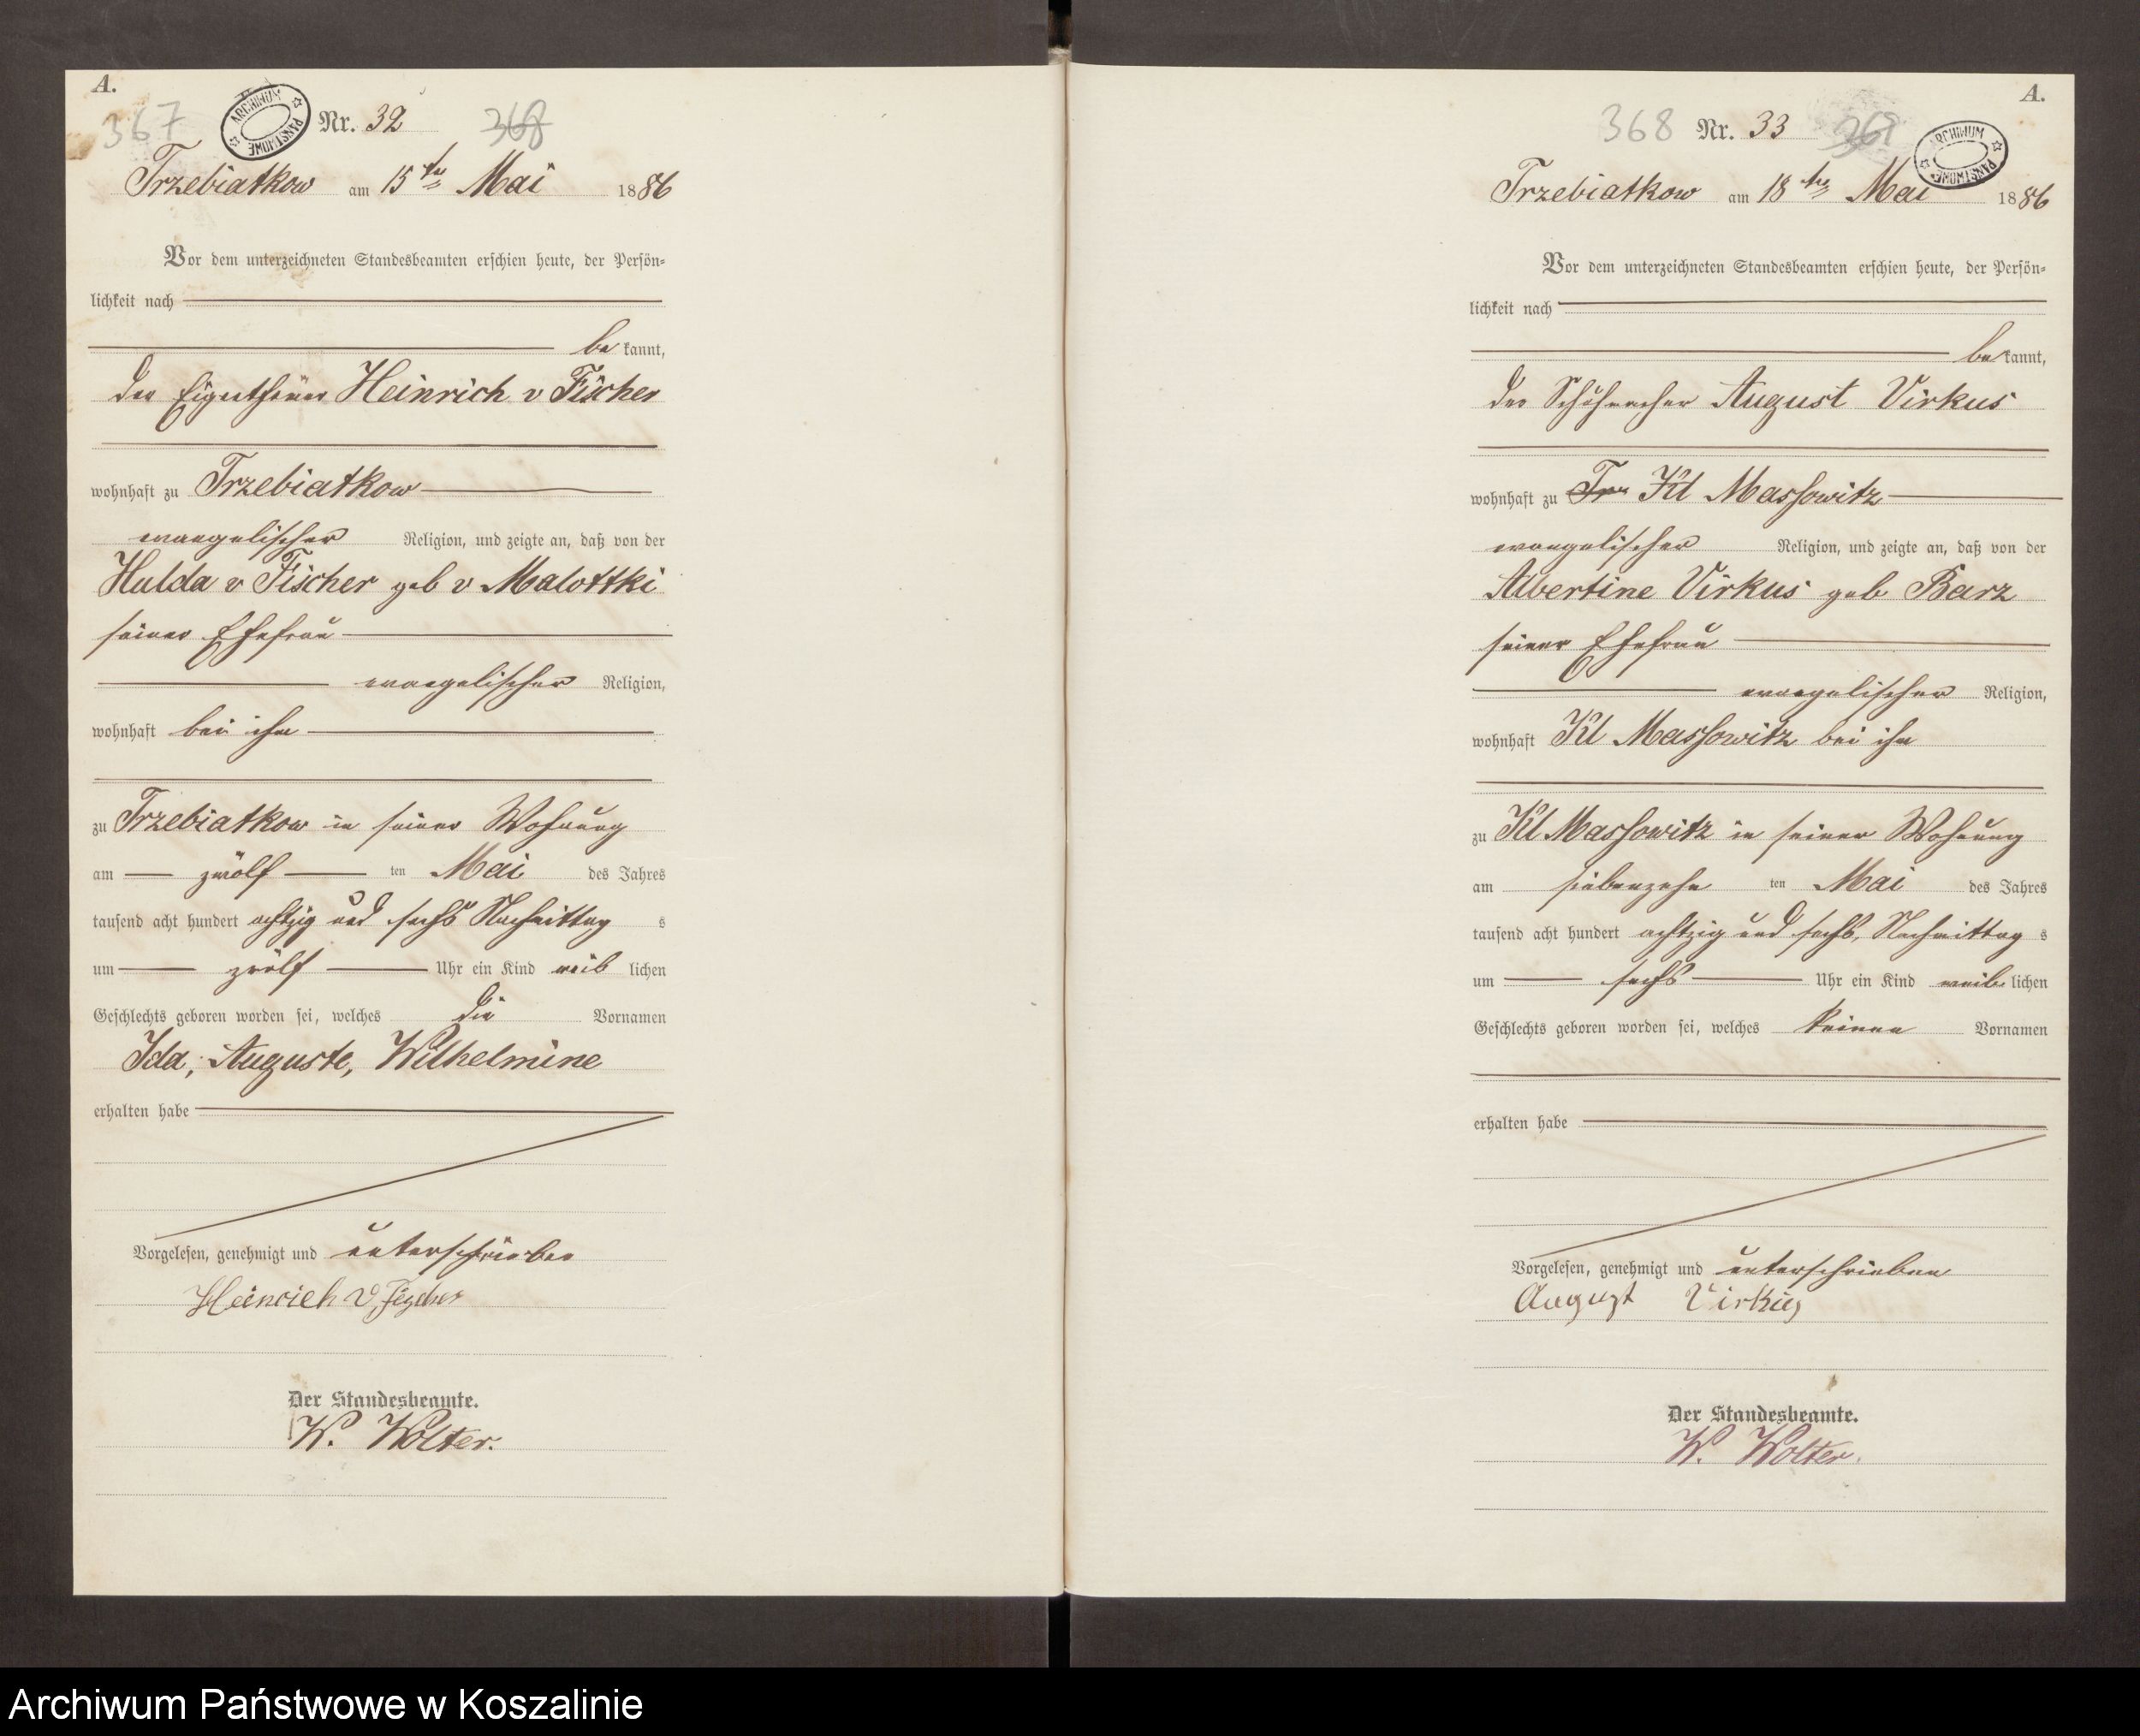 A.
367
ARCHIWUM PAŃSTWOWE
Nr. 32
368
Trzebiatkow am 15ten Mai 1886
Vor dem unterzeichneten Standesbeamten erschien heute, der Persön-
lichkeit nach
bekannt,
der Eigenthümer Heinrich v Fischer
wohnhaft zu Trzebiatkow
evangelischer Religion, und zeigte an, daß von der
Hulda v Fischer geb v Malottki
seiner Ehefrau
evangelischer Religion,
wohnhaft bei ihm
zu Trzebiatkow in seiner Wohnung
am zwölf ten Mai des Jahres
tausend acht hundert achtzig und sechs Nachmittags
um zwölf Uhr ein Kind weiblichen
Geschlechts geboren worden sei, welches die Vornamen
Ida, Auguste, Wilhelmine
erhalten habe
Vorgelesen, genehmigt und unterschrieben
Heinrich v Fischer
Der Standesbeamte.
W. Wolter.
A.
368
Nr. 33
369
ARCHIWUM PAŃSTWOWE
Trzebiatkow am 18ten Mai 1886
Vor dem unterzeichneten Standesbeamten erschien heute, der Persön-
lichkeit nach
bekannt,
der Schuhmacher August Virkus
wohnhaft zu Kl Massowitz
evangelischer Religion, und zeigte an, daß von der
Albertine Virkus geb Barz
seiner Ehefrau
evangelischer Religion,
wohnhaft Kl Massowitz bei ihm
zu Kl Massowitz in seiner Wohnung
am siebenzehn ten Mai des Jahres
tausend acht hundert achtzig und sechs, Nachmittags
um sechs Uhr ein Kind weiblichen
Geschlechts geboren worden sei, welches keinen Vornamen
erhalten habe
Vorgelesen, genehmigt und unterschrieben
August Virkus
Der Standesbeamte.
W. Wolter.
Archiwum Państwowe w Koszalinie